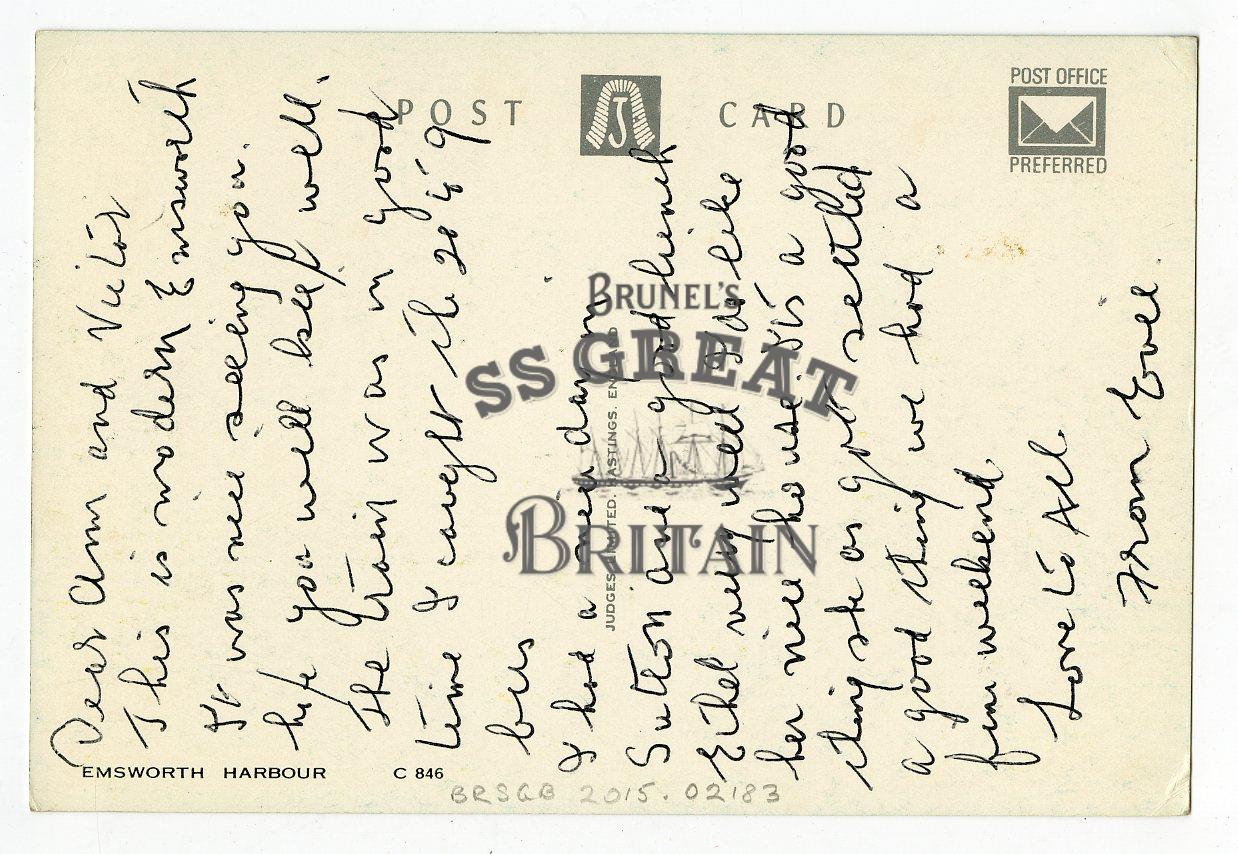 POST CARD
J
POST OFFICE
PREFERRED
Dear Ann and Victor
This is modern Emsworth
It was nice seeing you.
hope you will keep well.
The train was in good
time I caught the 20 to 9
bus
I had a nice day in
Sutton and a good lunch
Ethel very well You like
her nice house. its a good
thing she as got settled
a good thing we had a
fine weekend.
Love to All
From
JUDGES LIMITED. HASTINGS, ENGLAND
EMSWORTH HARBOUR C 846
BRSGB 2015.02183
BRUNEL'S
SS GREAT
BRITAIN